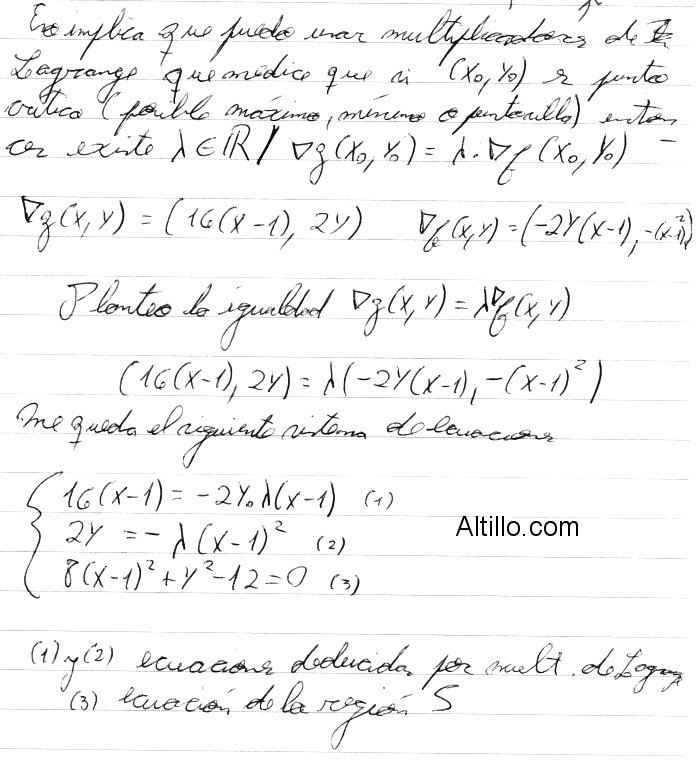 Eso implica que puedo usar multiplicadores de
Lagrange que me dice que si (x₀, y₀) es punto
crítico (posible máximo, mínimo o pto silla) enton
ces existe λ∈ℝ / ∇g(x₀, y₀) = λ·∇f(x₀, y₀)
∇g(x, y) = (16(x-1), 2y) ∇f(x,y) = (-2y(x-1), -(x-1)²)
Planteo la igualdad ∇g(x, y) = λ∇f(x, y)
(16(x-1), 2y) = λ(-2y(x-1), -(x-1)²)
Me queda el siguiente sistema de ecuaciones
16(x-1) = -2y·λ(x-1) (1)
2y = -λ(x-1)² (2)
Altillo.com
8(x-1)² + y² - 12 = 0 (3)
(1) y (2) ecuaciones deducidas por mult. de Lagrange
(3) ecuación de la región S